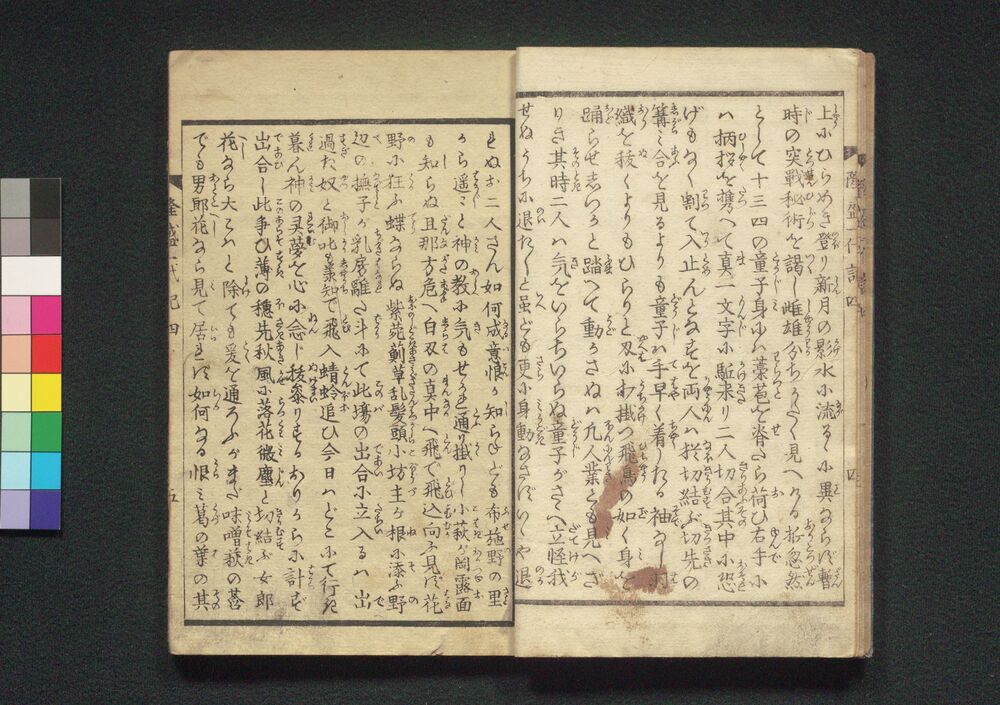 上にひらめき登り新月の影水に流るゝに異ならば暫
時の突戰秘術を謁し雌雄分ちがたく見へける折忽然
として十三四の童子身には藁苞を脊たら荷ひ右手に
は柄抄を携へて真一文字に駈来り二人切合其中に恐
げもなく割て入止んとなすを両人は抔切結ぶ切先の
篝に合を見るよりも童子は手早く着たる袖なし羽
織を䘺くよりもひらりと刄にわ掛つ飛鳥の如く身を
踊らせ志つかと踏へて動かさぬは凡人業とも見へざ
りき其時二人は気をいらちいらぬ童子がさゝへ立怪我
せぬうちに退たしと虽ども更に身動なさばいでや退
れぬお二人さん如何成意恨か知らねども布施野の里
から遥々と神の教に気もせかれ通り掛りし小萩が岡露面
も知らぬ且那方危へ白刄の真中へ飛で飛込向ふ見ず花
野に狂ふ蝶ならぬ紫菀薊草乱髪頭小坊主が根に添ふ野
辺の撫子が乳房離た斗にて此場の出合に立入るは出
過た奴と御叱も承知で飛入蜻蛉追ひ今日はとゝにて行さ
暮ん神の灵夢を心に念じ抜參りするおりからに計ず
出合し此争ひ薄の穂先秋風に落花微塵と切結ぶ女郎
花なら大こと除ても爰を通ろふがまだ味噌萩の甚
でも男郎花なら見て居れば如何なる恨み葛の葉の其
隆盛一代記 四
五